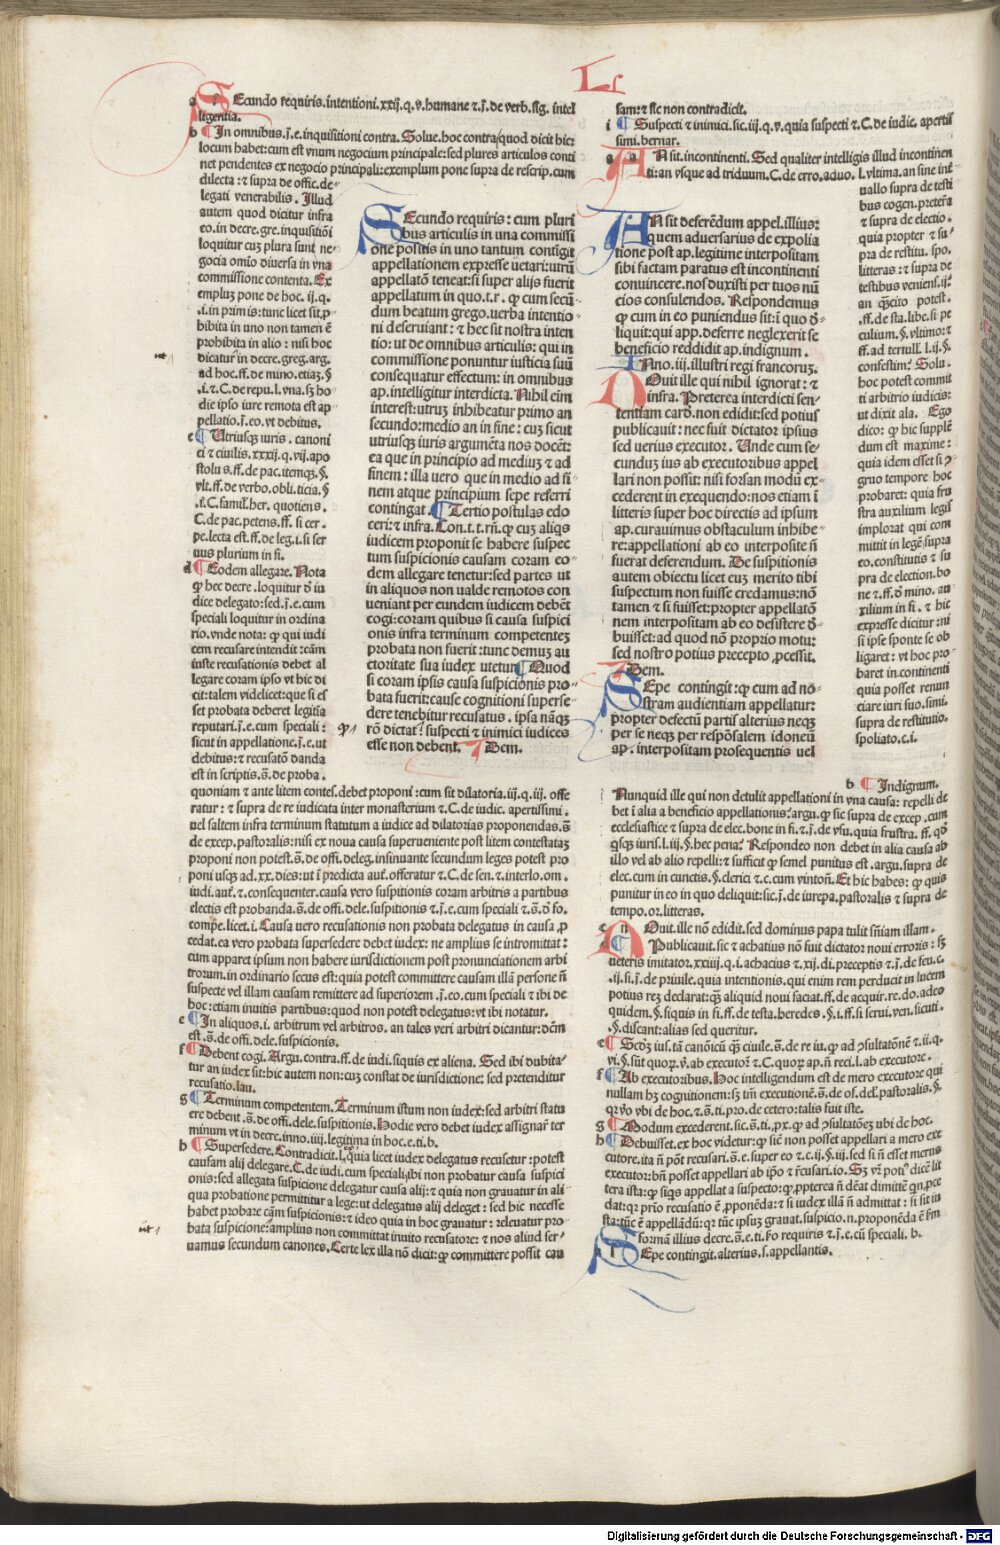 L
SEcundo requiris.intentioni.xxij.q.v.humane ⁊.j.de verb.sig. intel
ligentia.
b In omnibus.j.e.inquisitioni contra.Solue.hoc contra quod dicit hic
locum habet:cum est vnum negocium principale:sed plures articulos conti
net pendentes ex negocio principali:exemplum pone supra de rescrip.cum
dilecta:⁊ supra de offic.de-
legati venerabilis. Illud
autem quod dicitur infra
eo.in decre.gre.inquisitiōi
loquitur cuȝ plura sunt ne-
gocia omīo diuersa in vna
commissione contenta. Ex
emplum pone de hoc. ij.q.
.i.in primis:tunc licet sit p-
hibita in vno non tamen ē
prohibita in alio: nisi hoc
dicatur in decre.greg.arg.
ad hoc.ff.de mino.etiaȝ.§
.i.⁊.C.de repu.l.vna.sȝ ho
die ipso iure remota est ap-
pellatio.j.eo.vt debitus.
c Utriusqȝ iuris. canoni
ci ⁊ ciuilis.xxxij.q.vij.apo
stolus.ff.de pac.itemqȝ.§.
vlt.ff.de verbo.obli.ticia.§
.i.C.famil.her.quotiens.
C.de pac.petens.ff.si cer.
pe.lecta est.ff.de leg.i.si ser
uus plurium in fi.
d Eodem allegare. Nota
ꝙ hec decre.loquitur d' iu
dice delegato:sed.j.e.cum
speciali loquitur in ordina
rio.vnde nota: ꝙ qui iudi
cem recusare intendit:cām
iuste recusationis debet al
legare coram ipso vt hic di
cit:talem videlicet:que si es
set probata deberet legitia
reputari.j.e.cum speciali:
sicut in appellatione.j.e.ut
debitus:⁊ recusatō danda
est in scriptis.s̄.de proba.
quoniam ⁊ ante litem contes.debet proponi:cum sit dilatoria.iij.q.iij. offe
ratur: ⁊ supra de re iudicata inter monasterium ⁊.C.de iudic. apertissimi.
uel saltem infra terminum statutum a iudice ad dilatorias proponendas.s̄
de excep.pastoralis:nisi ex noua causa superueniente post litem contestataȝ
proponi non potest.s̄.de offi.deleg.insinuante secundum leges potest pro
poni usqȝ ad.xx.dies:ut ī predicta aut̄.offeratur ⁊.C.de sen.⁊ interlo.om.
iudi.aut̄.⁊ consequenter.causa vero suspitionis coram arbitris a partibus
electis est probanda.s̄.de offi.dele.suspitionis ⁊.j.e.cum speciali ⁊.s̄.d' fo.
compe.licet.i.Causa vero recusationis non probata delegatus in causa.p
cedat.ea vero probata supersedere debet iudex: ne amplius se intromittat:
cum apparet ipsum non habere iurisdictionem post pronunciationem arbi
trorum.in ordinario secus est:quia potest committere causam illā persone ñ
suspecte vel illam causam remittere ad superiorem.j.eo.cum speciali ⁊ ibi de
hoc:etiam inuitis partibus:quod non potest delegatus:vt ibi notatur.
e In aliquos.i. arbitrum vel arbitros. an tales veri arbitri dicantur:dc̄m
est .s̄.de offi.dele.suspicionis.
f Debent cogi. Argu.contra.ff.de iudi.siquis ex aliena. Sed ibi dubita-
tur an iudex sit:hic autem non:cuȝ constat de iurisdictione: sed pretenditur
recusatio.lau.
g Terminum competentem. Terminum istum non iudex:sed arbitri statu
ere debent .s̄.de offi.dele.suspitionis. Hodie vero debet iudex assignare ter
minum vt in decre.inno.iiij.legitima in hoc.e.ti.b.
h Supersedere. Contradicit.l.quia licet iudex delegatus recusetur:potest
causam alij delegare.C.de iudi.cum speciali.ibi non probatur causa suspici
onis:sed allegata suspicione delegatur causa alij:⁊ quia non grauatur in ali-
qua probatione permittitur a lege:ut delegatus alij deleget: sed hic necesse
habet probare cām suspicionis:⁊ ideo quia in hoc grauatur : releuatur pro-
bata suspicione:amplius non committat inuito recusatore: ⁊ nos aliud ser-
uamus secundum canones.Certe lex illa nō dicit:ꝙ committere possit cau
SEcundo requiris: cum pluri
bus articulis in una commissi
one positis in uno tantum contigit
appellationem expresse uetari:utrū
appellatō teneat:si super alijs fuerit
appellatum in quo.t.r. ꝙ cum secū-
dum beatum grego.uerba intentio-
ni deseruiant: ⁊ hec sit nostra inten
tio: ut de omnibus articulis: qui in
commissione ponuntur iusticia suū
consequatur effectum: in omnibus
ap.intelligitur interdicta. Nihil eim
interest:utruȝ inhibeatur primo an
secundo:medio an in fine: cuȝ sicut
utriusqȝ iuris argumēta nos docēt:
ea que in principio ad mediuȝ ⁊ ad
finem: illa uero que in medio ad fi-
nem atque principium sepe referri
contingat. Tertio postulas edo
ceri:⁊ infra.Con.t.t.rñ.ꝙ cuȝ aliqs
iudicem proponit se habere suspec
tum suspicionis causam coram eo
dem allegare tenetur:sed partes ut
in aliquos non ualde remotos con
ueniant per eundem iudicem debēt
cogi:coram quibus si causa suspici
onis infra terminum competenteȝ
probata non fuerit:tunc demuȝ au
ctoritate sua iudex utetur. Quod
si coram ipsis causa suspicionis pro-
bata fuerit:cause cognitioni superse-
dere tenebitur recusatus . ipsa nāqȝ
rō dictat: suspecti ⁊ inimici iudices
esse non debent. IDem.
sam:⁊ sic non contradicit.
i Suspecti ⁊ inimici.sic.iij.q.v.quia suspecti ⁊.C.de iudic. apertis
simi.bernar.
AN sit.incontinenti. Sed qualiter intelligis illud incontinen
ti:an vsque ad triduum.C.de erro.aduo. l.vltima.an sine int̄
uallo supra de testi
bus cogen.preterea
⁊ supra de electio.
quia propter ⁊ su-
pra de restitu. spo.
litteras:⁊ supra de
testibus veniens.ij.
an q̄sito potest.
.ff.de sta.libe.si pe
culium.§.vltimo:⁊
ff.ad tertull. l.ij.§.
confestim: Solu.
hoc potest commit
ti arbitrio iudicis:
ut dixit ala. Ego
dico: ꝙ hic supplē
dum est maxime:
quia idem esset si
gruo tempore hoc
probaret: quia fru
stra auxilium legis
implorat qui com
mittit in legē supra
eo.constitutis ⁊ su
pra de election.bo
ne ⁊.ff.d' mino. au-
xilium in fi. ⁊ hic
expresse dicitur:ni
si ipse sponte se ob
ligaret: vt hoc pro-
baret in continenti
quia posset renun
ciare iuri suo.simi.
supra de restitutio.
spoliato.c.i.
AN sit deferēdum appel.illius:
quem aduersarius de expolia
tione post ap.legitime interpositam
sibi factam paratus est incontinenti
conuincere.nos duxisti per tuos nū
cios consulendos. Respondemus
ꝙ cum in eo puniendus sit:ī quo d'-
liquit:qui app.deferre neglexerit se
beneficio reddidit ap.indignum.
INno.iij.illustri regi francoruȝ.
NOuit ille qui nihil ignorat: ⁊
infra. Preterea interdicti sen-
tentiam card.non edidit:sed potius
publicauit: nec fuit dictator ipsius
sed uerius executor. Unde cum se-
cunduȝ ius ab executoribus appel
lari non possit: nisi forsan modū ex-
cederent in exequendo:nos etiam ī
litteris super hoc directis ad ipsum
ap.curauimus obstaculum inhibe-
re:appellationi ab eo interposite si
fuerat deferendum. De suspitionis
autem obiectu licet euȝ merito tibi
suspectum non fuisse credamus:nō
tamen ⁊ si fuisset:propter appellatō
nem interpositam ab eo desistere d'-
buisset:ad quod nō proprio motu:
sed nostro potius precepto .pcessit.
IDem.
SEpe contingit:ꝙ cum ad no-
stram audientiam appellatur:
propter defectū partis alterius neqȝ
per se neqȝ per respōsalem idoneū
ap. interpositam prosequentis uel
b Indignum.
Nunquid ille qui non detulit appellationi in vna causa: repelli de
bet ī alia a beneficio appellationis:argu.ꝙ sic supra de excep .cum
ecclesiastice ⁊ supra de elec.bone in fi.⁊.j.de vsu.quia frustra. ff. qd'
qsqȝ iuris.l.iij.§.hec pena: Respondeo non debet in alia causa ab
illo vel ab alio repelli:⁊ sufficit ꝙ semel punitus est.argu.supra de
elec.cum in cunctis.§.clerici ⁊.c.cum vintoñ.Et hic habes: ꝙ quis
punitur in eo in quo deliquit:sic.j.de iurepa.pastoralis ⁊ supra de
tempo.or.litteras.
c NOuit.ille nō edidit.sed dominus papa tulit sñiam illam.
d Publicauit.sic ⁊ achatius nō fuit dictator noui erroris: sȝ
ueteris imitator.xxiiij.q.i.achacius ⁊.xij.di.preceptis ⁊.j.de feu.c.
.ij.fi.j.de priuile.quia intentionis.qui enim rem perducit in lucem
potius reȝ declarat:q̄ aliquid noui faciat.ff.de acquir.re.do.adeo
quidem.§.siquis in fi.ff.de testa.heredes.§.i.ff.si serui.ven.sicuti.
.§.discant:alias sed queritur.
e Scdȝ ius.tā canōicū q̄ ciuile.s̄.de re iu.ꝙ ad ꝯsultatōnē ⁊.ij.q.
vi.§.sūt quoꝝ.v̄.ab executoꝝ ⁊.C.quoꝝ ap.ñ reci.l.ab executore.
f Ab executoribus.Hoc intelligendum est de mero executore qui
nullam hȝ cognitionem:sȝ tm̄ executionē.s̄.de of.del'.pastoralis.§.
qꝛ vo vbi de hoc.⁊.s̄.ti.pro.de cetero:talis fuit iste.
g Modum excederent.sic.s̄.ti.px.ꝙ ad ꝯsultatōeȝ ubi de hoc.
h Debuisset.ex hoc videtur:ꝙ siē non posset appellari a mero exe
cutore.ita ñ pōt recusari.s̄.e.super eo ⁊.c.ij.§.iij.sed si ñ esset merus
executor:bñ posset appellari ab ip̄o ⁊ r̄cusari.io.
SEpe contingit.alterius.s.appellantis.
Digitalisierung gefördert durch die Deutsche Forschungsgemeinschaft - DFG